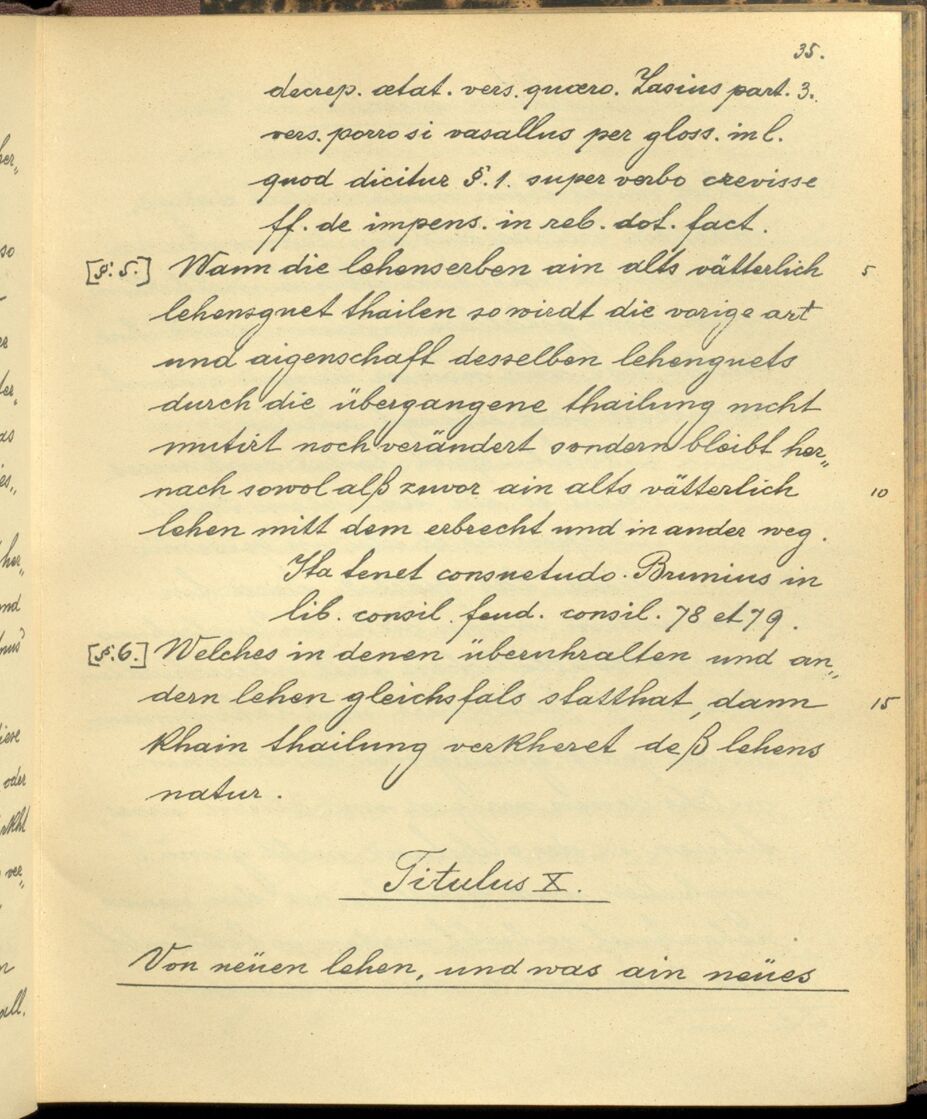 35.
decrep. ætat. vers. quæro. Zasius part. 3.
vers. porro si vasallus per gloss. in l.
quod dicitur §. 1. super verbo crevisse
ff. de impens. in reb. dot. fact.
[§. 5.] Wann die lehenserben ain alts vätterlich 5
lehensguet thailen so wirdt die vorige art
und aigenschaft desselben lehenguets
durch die übergangene thailung nicht
mutirt noch verändert sondern bleibt her„
nach sowol alß zuvor ain alts vätterlich 10
lehen mitt dem erbrecht und in ander weg.
Ita tenet consuetudo. Brunius in
lib. consil. feud. consil. 78 et 79.
[§. 6.] Welches in denen überuhralten und an„
dern lehen gleichsfals statthat, dann 15
khain thailung verkheret deß lehens
natur.
Titulus X.
Von neüen lehen, und was ain neües